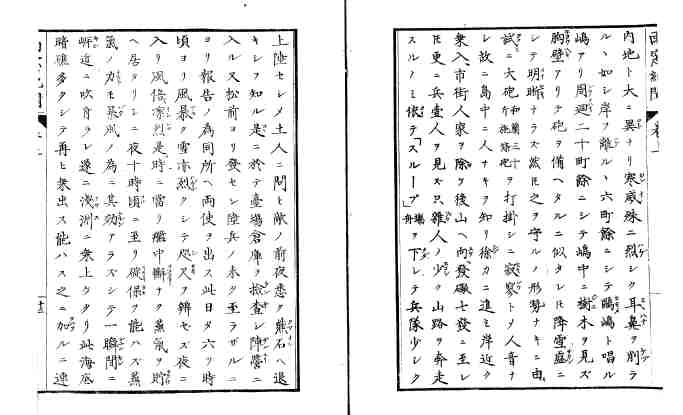 内地ト大ニ異ナリ寒威殊ニ烈シク耳鼻ヲ別ラ
ルヽ如シ岸ヲ離ルヽ六町餘ニシテ鴎嶋ト唱ル
嶋アリ周廻二十町餘ニシテ嶋中ニ樹木ヲ見ズ
胸壁アリテ砲ヲ備ヘタルニ似タレ𪜈降雪庭ニ
シテ明晰ナラズ然𪜈之ヲ守ルノ形勢ナキニ由
試ニ大砲ヲ打掛シニ寂寥トメ人音ナ
レ故ニ島中ニ人ナキヲ知リ徐カニ進ミ岸近ク
乗入市街人家ヲ除ク後山ヘ向發礮七發ニ至レ
𪜈更ニ兵壹人ヲ見ズ只雜人ノ少ク山路ヲ奔走
スルノミ依テ「スループ」ヲ下レテ兵隊少レク
上陸セレメ土人ニ問ヒ敵ノ前夜悉ク熊石ヘ退
キレヲ知ル是ニ於テ臺場倉庫ヲ檢査レ陣營ニ
入ル又松前ヨリ發セレ陸兵ノ未タ至ラザルニ
ヨリ報告ノ為同所ヘ両使ヲ出ス此日夕六ツ時
頃ヨリ風暴ク雪亦烈クシテ咫尺ヲ辨セズ夜ニ
入リ風倍凛烈是時ニ當リ艦中斷ナク蒸氣ヲ貯
ヘ居タリレニ夜十時頃ニ至リ碇保ツ能ハズ蒸
氣ノ力モ暴風ノ為ニ其効アラズシテ一瞬間ニ
嶼邉ニ吹寄ラレ遂ニ淺洲ニ乗上タリ此海底
暗礁多クシテ再ヒ乗出ス能ハス之ニ加ルニ連